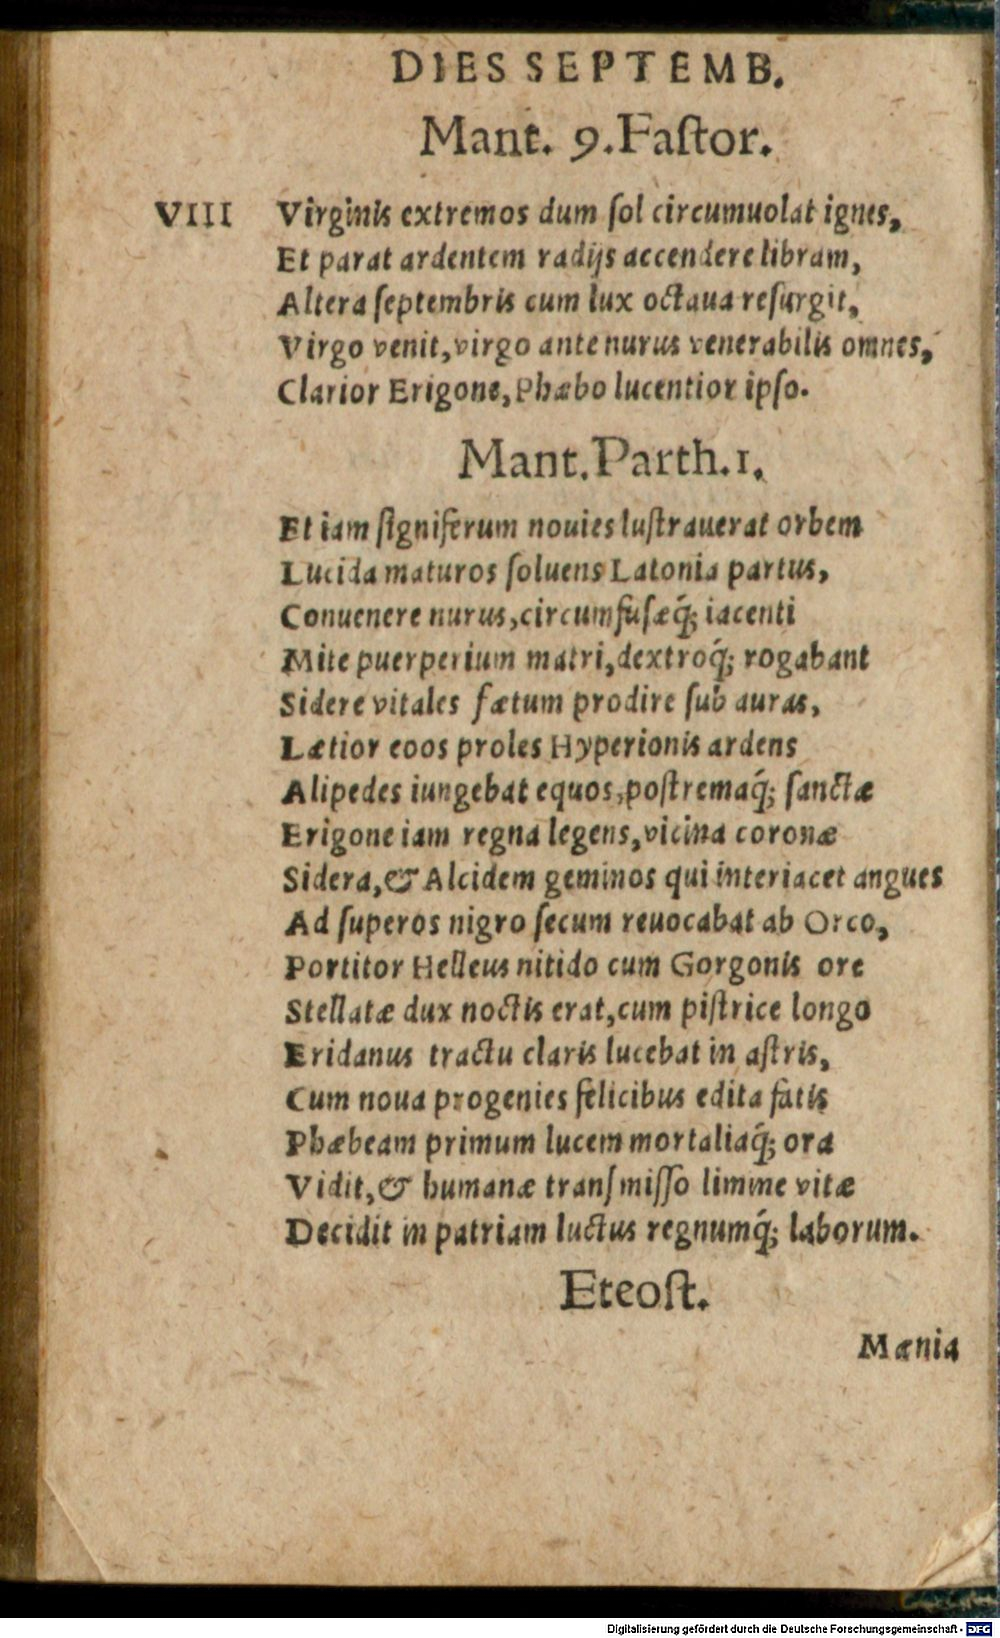 DIES SEPTEMB.
Mant. 9. Faſtor.
VIII Virginis extremos dum ſol circumuolat ignes,
Et parat ardentem radijs accendere libram,
Altera ſeptembris cum lux octaua reſurgit,
Virgo venit, virgo ante nurus venerabilis omnes,
Clarior Erigone, Phæbo lucentior ipſo.
Mant. Parth. 1.
Et iam ſigniferum nouies luſtrauerat orbem
Lucida maturos ſoluens Latonia partus,
Conuenere nurus, circumfuſæq́; iacenti
Mite puerperium matri, dextroq́; rogabant
Sidere vitales fætum prodire ſub auras,
Lætior eoos proles Hyperionis ardens
Alipedes iungebat equos, poſtremaq́; ſanctæ
Erigone iam regna legens, vicina coronæ
Sidera, & Alcidem geminos qui interiacet angues
Ad ſuperos nigro ſecum reuocabat ab Orco,
Portitor Helleus nitido cum Gorgonis ore
Stellatæ dux noctis erat, cum piſtrice longo
Eridanus tractu claris lucebat in aſtris,
Cum noua progenies felicibus edita fatis
Phæbeam primum lucem mortaliaq́; ora
Vidit, & humanæ tranſmiſſo limine vitæ
Decidit in patriam luctus regnumq́; laborum.
Eteoſt.
Mænia
Digitalisierung gefördert durch die Deutsche Forschungsgemeinschaft - DFG